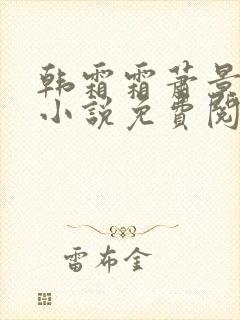 韩霜霜萧景
小说免费阅
雷布金